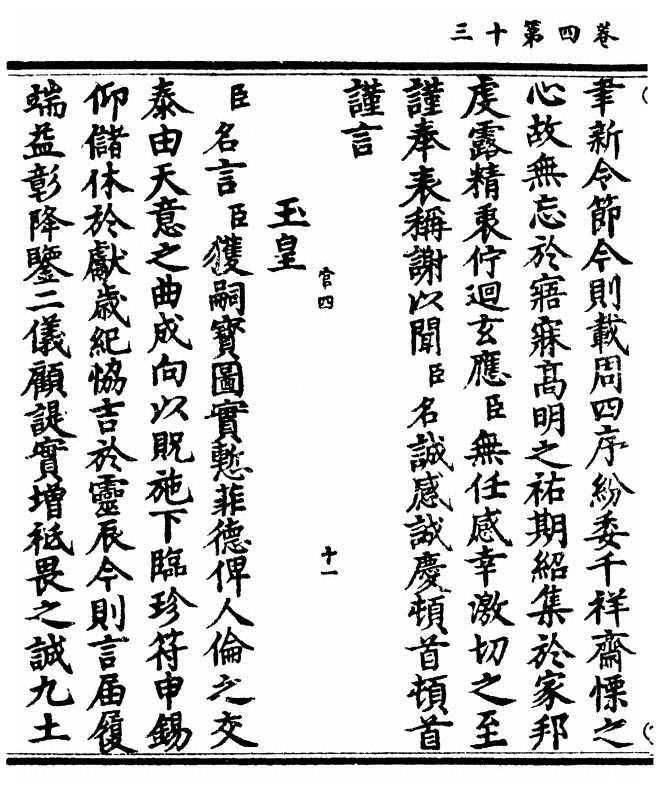 三十第四卷
聿新令節今則載周四序紛委千祥齋慄之
心故無忘於寤寐高明之祐期紹集於家邦
虔露精衷佇迴玄應臣無任感幸激切之至
謹奉表稱謝以聞臣名誠感誠慶頓首頓首
謹言
官四 十一
玉皇
臣名言臣獲嗣寶圖實慙菲德俾人倫之交
泰由天意之曲成向以貺施下臨珍符申錫
仰儲休於獻歲紀恊吉於靈辰今則言届履
端益彰降鑒二儀顧諟實增祗畏之誠九土